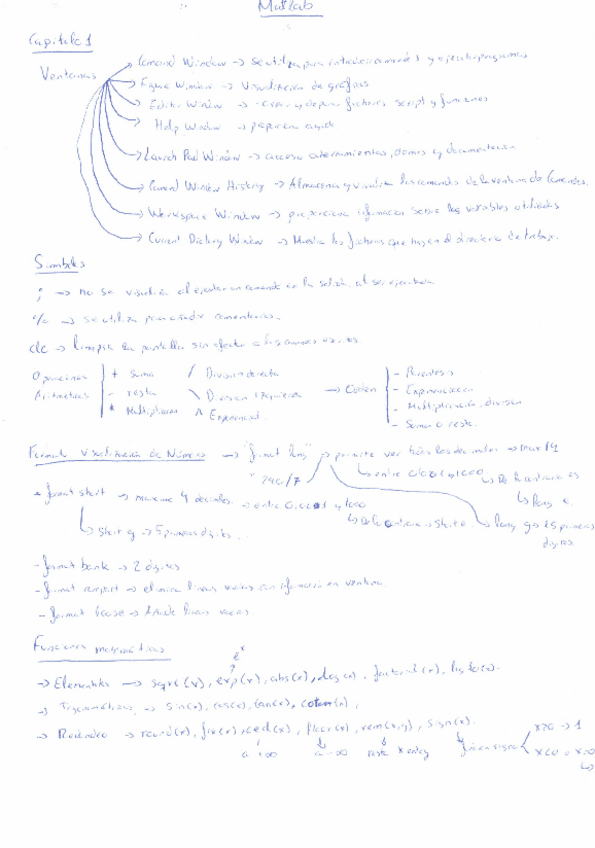 Matlab
Capitulo 1
Ventanas
Comand Window → se utiliza para introducir comandos y ejecutar programas
Figure Window → Visualización de gráficas
Editor Window → crear y depurar ficheros script y funciones
Help Window → proporciona ayuda
Launch Pad Window → acceso a herramientas, demos y documentación
Comand Window History → Almacena y visualiza los comandos de la ventana de Comandos.
Workspace Window → proporciona información sobre las variables utilizadas
Current Directory Window → Muestra los ficheros que hay en el directorio de trabajo.
Simbolos
; → no se visualiza al ejecutar un comando en la salida, al ser ejecutada
% → se utiliza para añadir comentarios.
clc → limpia la pantalla sin afectar a
Operaciones Aritméticas
+ Suma / División derecha
- resta \ División izquierda
* Multiplicación ^ Exponencial
→ Orden
- Parentesis
- Exponenciación
- Multiplicación, división
- Suma o resta.
Formato Visualización de Números → "format long" → permite ver todos los decimales → max 14
* 240/7
→ entre 0,001 y 1000 → De lo contrario es
→ long e.
→ long g → 15 primeros digitos
* format short → maximo 4 decimales → entre 0,001 y 1000
→ De lo contrario → short e
→ short g → 5 primeros digitos.
- format bank → 2 digitos
- format compact → elimina lineas vacias con información en ventana
- format loose → Añade lineas vacias.
Funciones matemáticas
e^x
→ Elementales → sqrt(x), exp(x), abs(x), log(x), factorial(x), log10(x).
→ Trigonométricas → sin(x), cos(x), tan(x), cotan(x),
→ Redondeo → round(x), fix(x), ceil(x), floor(x), rem(x,y), sign(x).
a +∞ a -∞ resto x entre y función signo
x>0 → 1
x<0